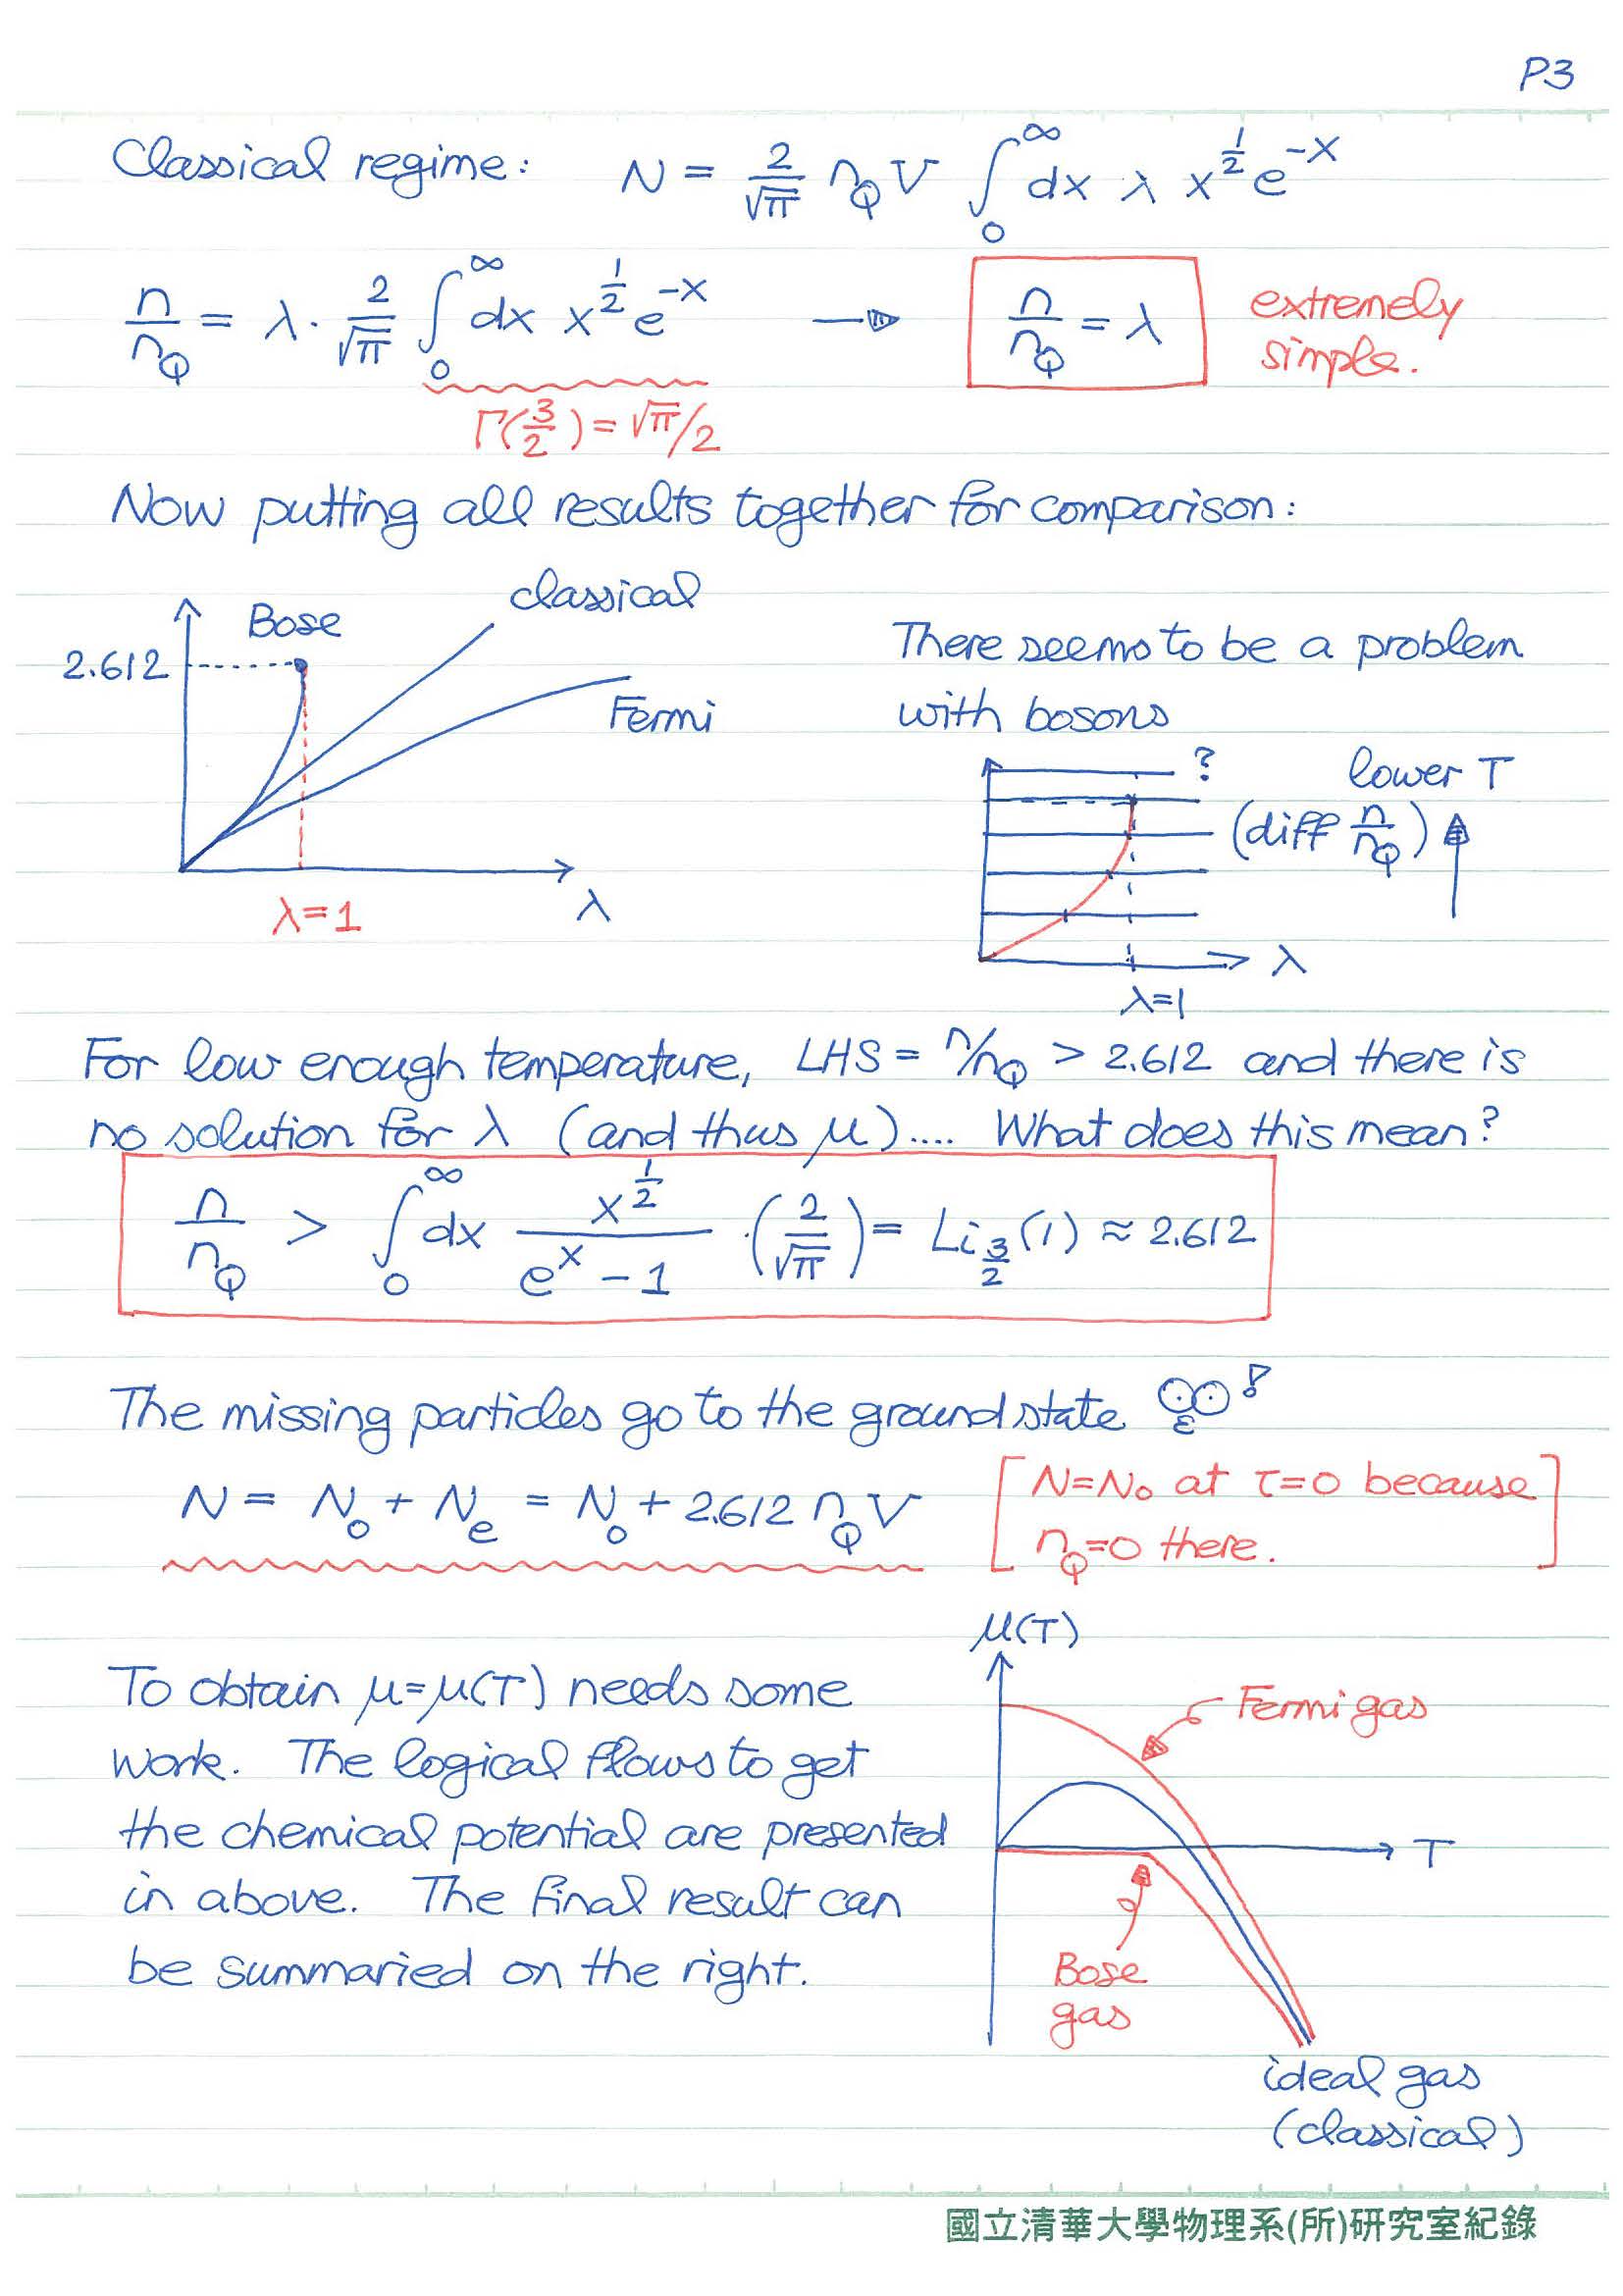 P3
Classical regime: N = 2/√π n_Q V ∫_0^∞ dx λ x^{1/2} e^{-x}
n/n_Q = λ · 2/√π ∫_0^∞ dx x^{1/2} e^{-x} → n/n_Q = λ extremely simple.
Γ(3/2) = √π/2
Now putting all results together for comparison:
2.612 Bose classical
Fermi
λ=1 λ
There seems to be a problem
with bosons
? lower T
(diff n/n_Q)
λ
λ=1
For low enough temperature, LHS = n/n_Q > 2.612 and there is
no solution for λ (and thus μ).... What does this mean?
n/n_Q > ∫_0^∞ dx x^{1/2}/(e^x - 1) · (2/√π) = Li_{3/2}(1) ≈ 2.612
The missing particles go to the ground state !
N = N_0 + N_e = N_0 + 2.612 n_Q V
[N=N_0 at τ=0 because
n_Q=0 there.]
To obtain μ=μ(T) needs some
work. The logical flows to get
the chemical potential are presented
in above. The final result can
be summaried on the right.
μ(T)
Fermi gas
T
Bose
gas
ideal gas
(classical)
國立清華大學物理系(所)研究室紀錄